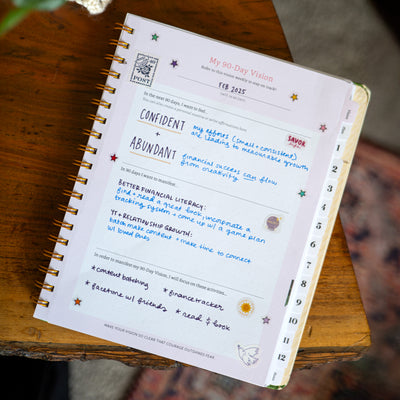 My 90-Day Vision
Refer to this vision weekly to stay on track!
POST
FEB 2025
In the next 90 days, I want to feel...
CONFIDENT
my efforts (small + consistent)
are leading to measurable growth
SAVOR
+
ABUNDANT
financial success can flow
from creativity
In 90 days I want to manifest...
BETTER FINANCIAL LITERACY:
find + read a great book, incorporate a
tracking system + come up w/ a game plan
YT + RELATIONSHIP GROWTH:
batch make content + make time to connect
w/ loved ones
In order to manifest my 90-Day Vision, I will focus on these activities...
★ content batching
★ finance tracker
★ facetime w/ friends
★ read 1 book
MAKE YOUR VISION SO CLEAR THAT COURAGE OUTSHINES FEAR
1
2
3
4
5
6
7
8
9
10
11
12